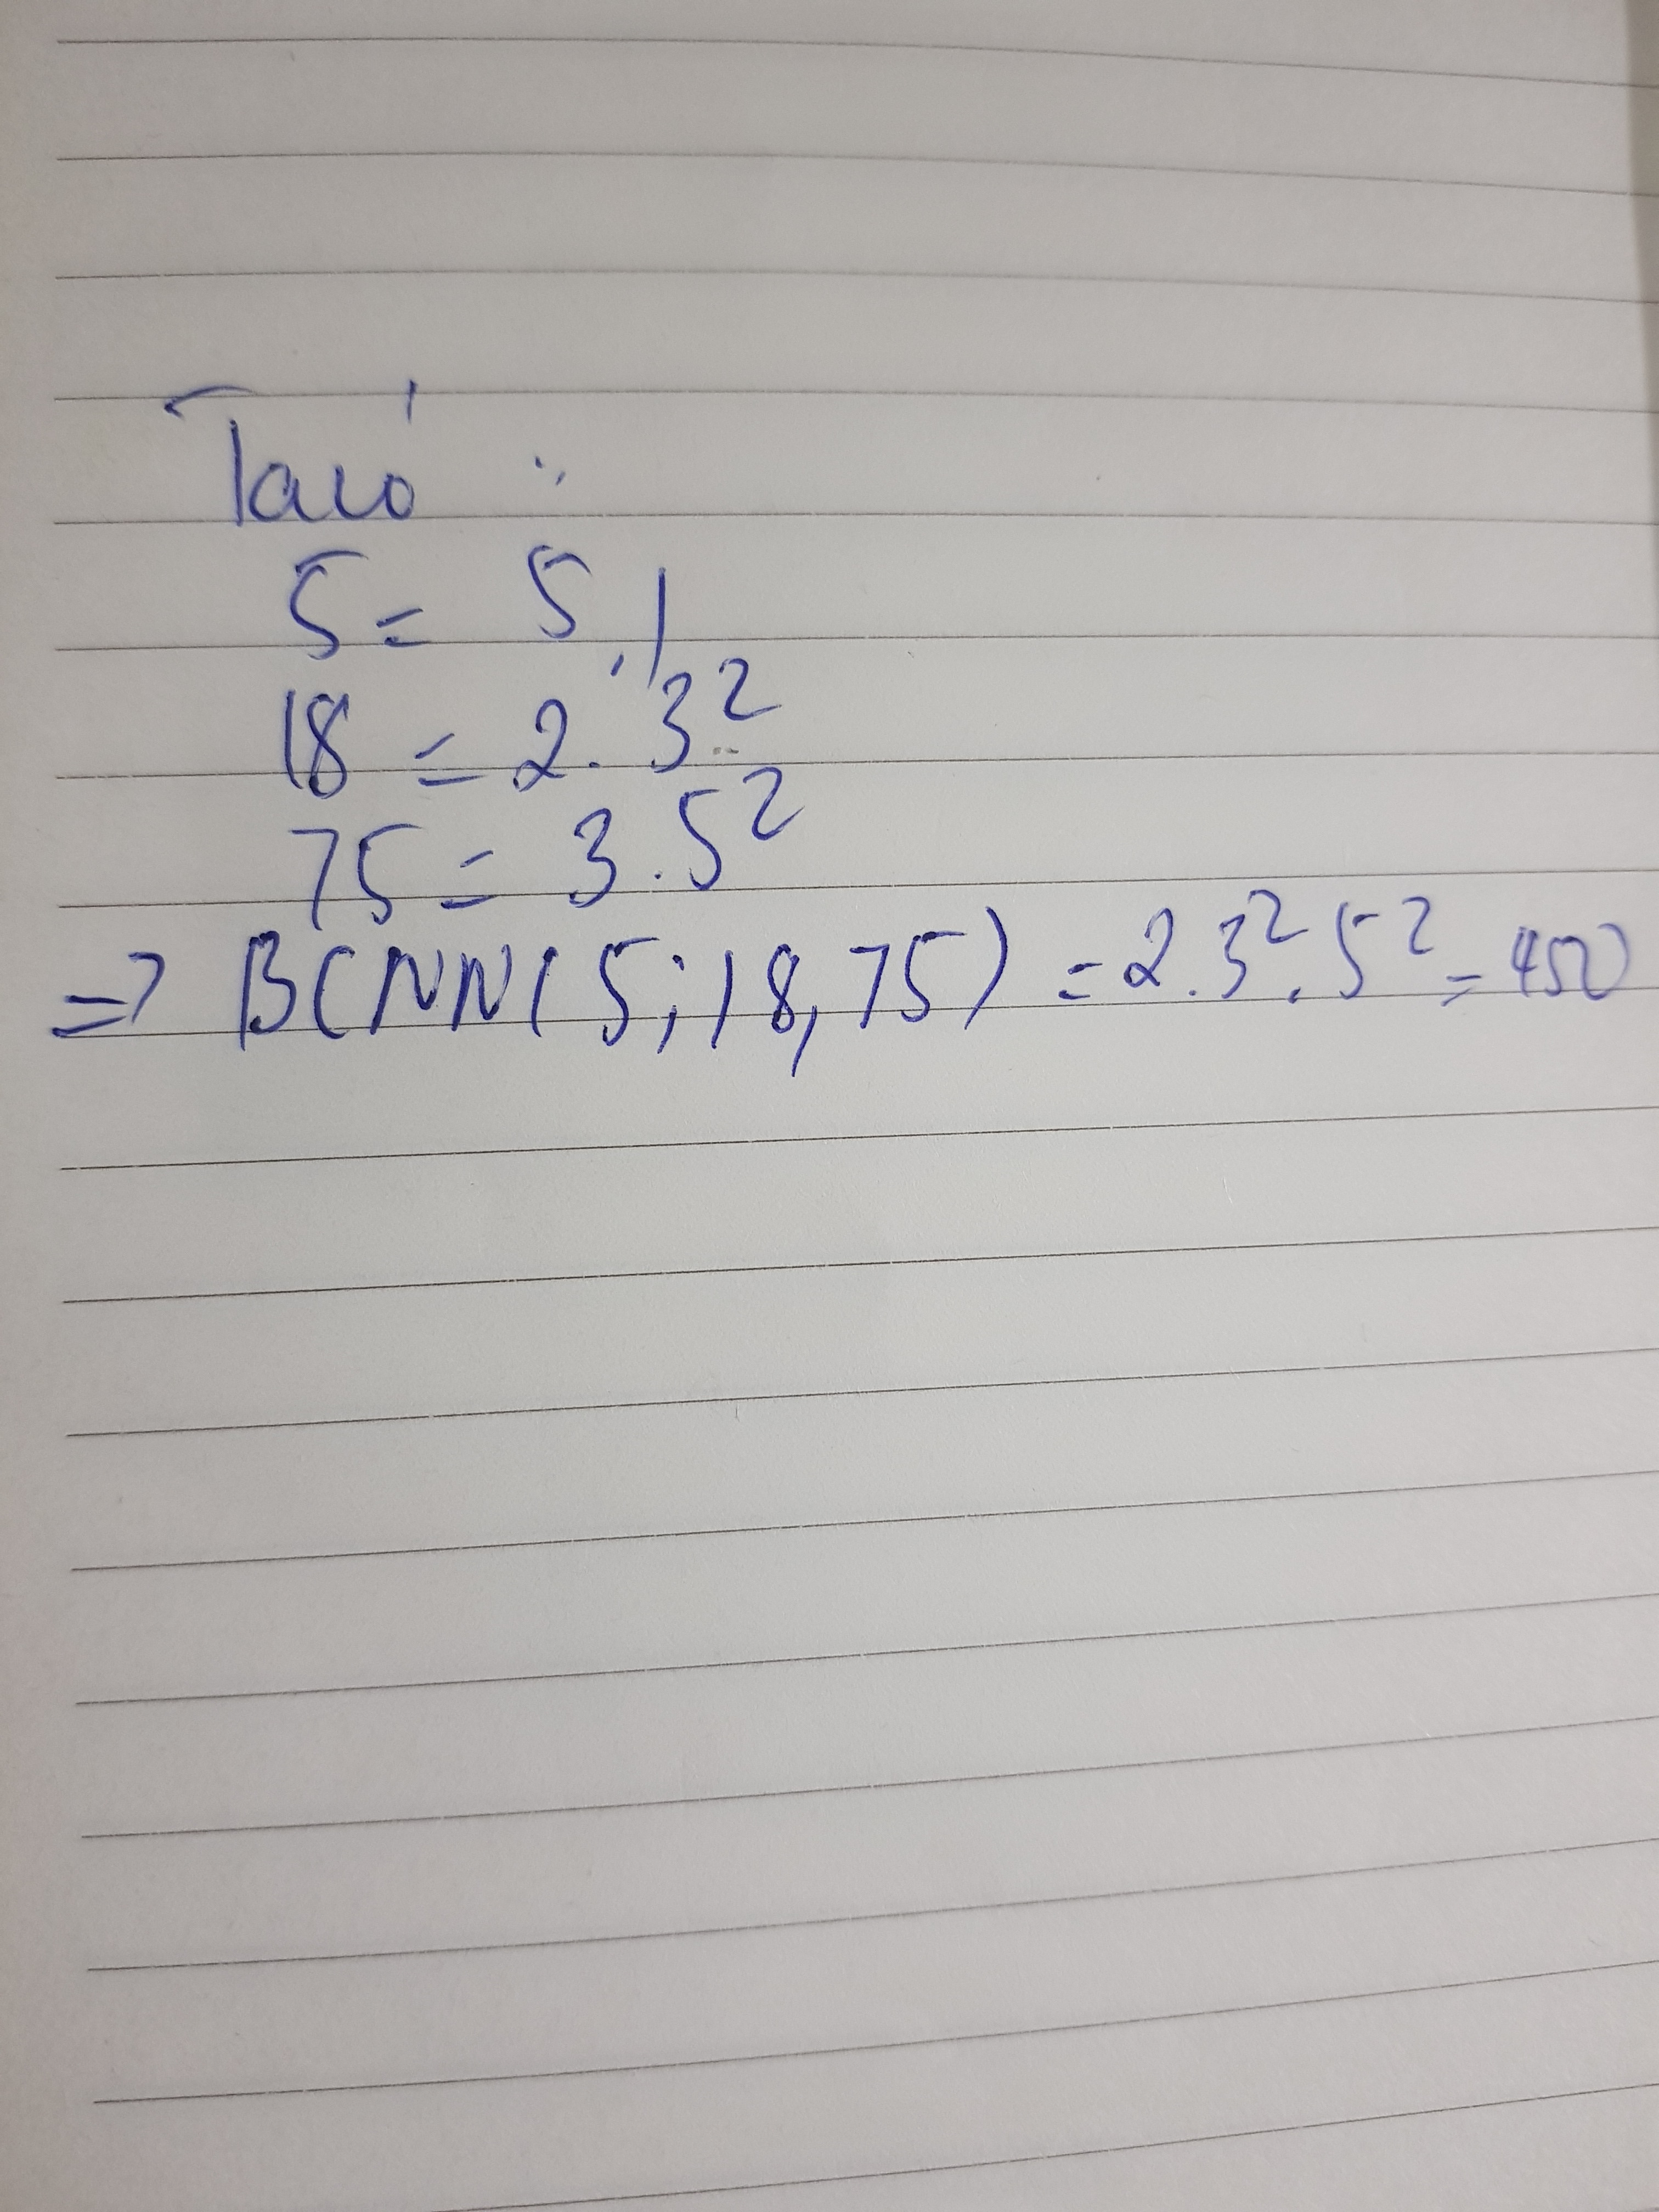 Ta có :
5 = 5.1
18 = 2.3²
75 = 3.5²
=> BCNN(5;18,75) = 2.3².5² = 450